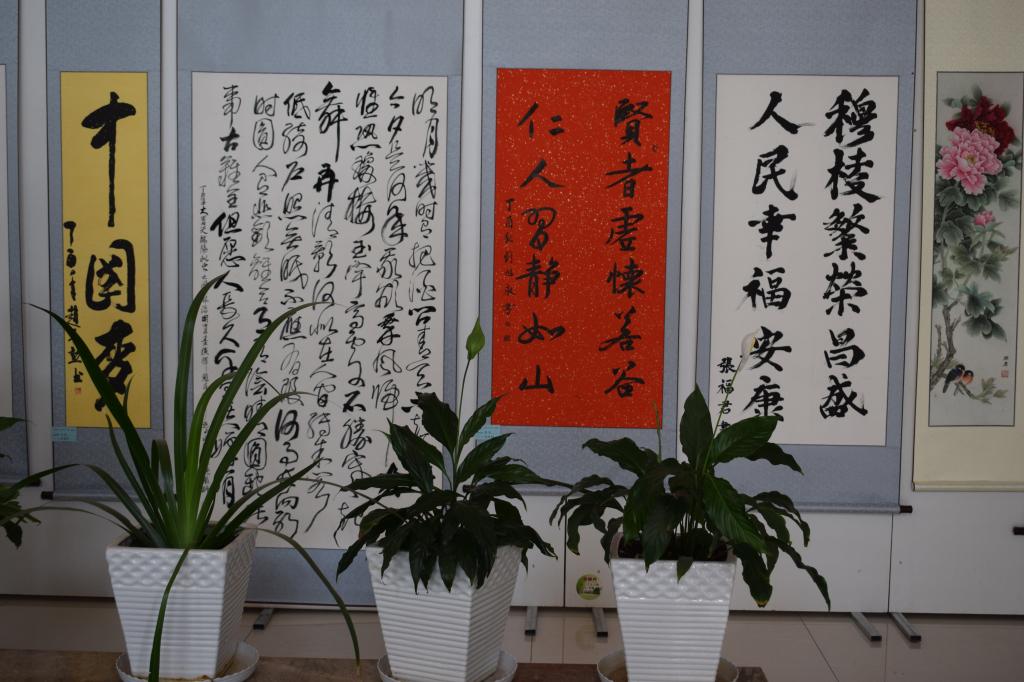 中國夢
明月幾時有把酒問青天不
今夕是何年我欲乘風歸
惟恐瓊樓玉宇高處不勝寒起
舞弄清影何似在人間轉朱閣
低綺戶照無眠不應有恨何事長向別
時圓人有悲歡離合月有陰晴圓缺
事古難全但願人長久千里
賢者虛懷若谷
仁人習靜如山
穆棱繁榮昌盛
人民幸福安康
張福君